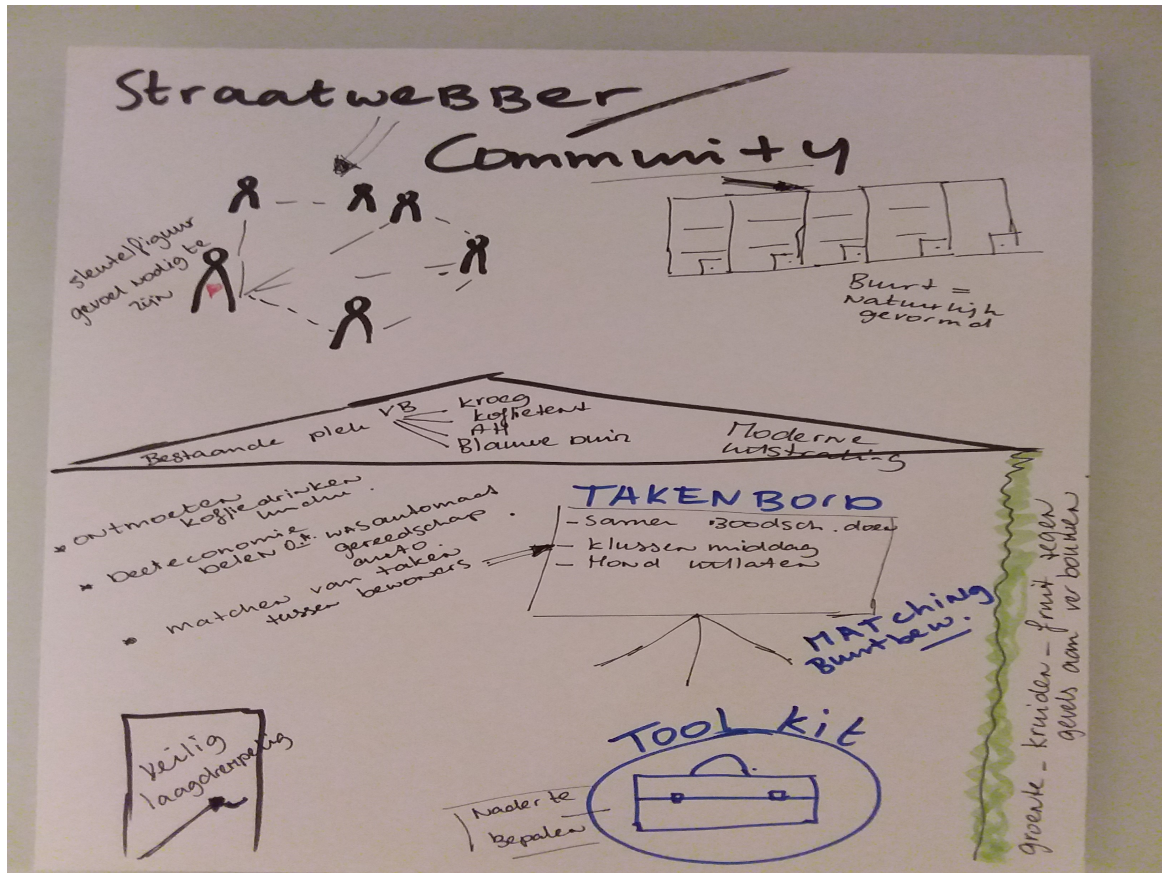 StraatweBBer
Community
sleutelfiguur
gevoel nodig te
zijn
Buurt =
Natuurlijk
gevormd
Bestaande plek VB
kroeg
koffietent
AH
Blauwe Duin
Moderne
uitstraling
* ontmoeten
koffiedrinken
lunchen.
* Deeleconomie
delen O.A. wasautomaat
gereedschap
auto.
* matchen van taken
tussen bewoners
TAKENBORD
- Samen Boodsch. doen
- klussen middag
- Hond uitlaten
MATChing
Buurtbew.
groente - kruiden - fruit tegen
gevels aan verbouwen.
Veilig
laagdrempelig
TOOL kit
Nader te
Bepalen